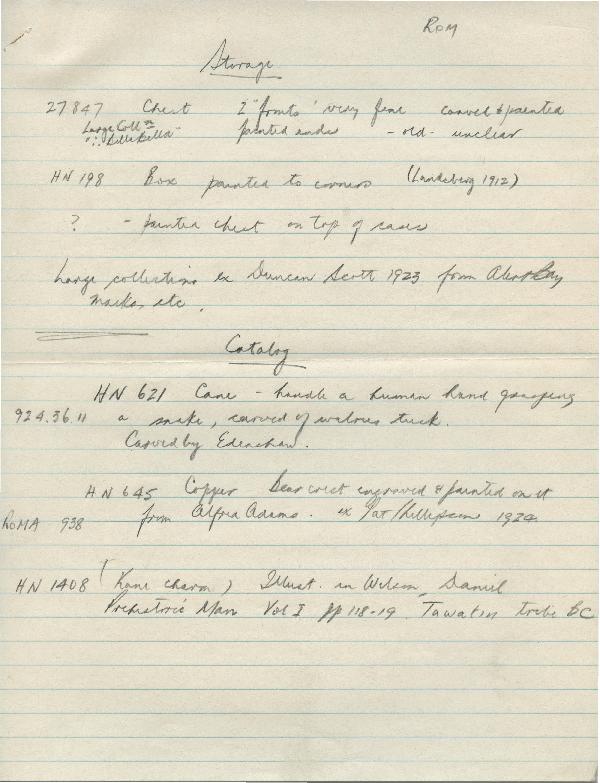 ROM
Storage
27847 Chest 2 "fronts" very fine carved & painted
Large Colln painted ends - old - unclear
∴ Bella Bella"
HN 198 Box painted to corners (Landsberg 1912)
? - painted chest on top of cases
Large collections ex Duncan Scott 1923 from Alert Bay
masks, etc.
Catalog
HN 621 Cane - handle a human hand grasping
924.36.11 a snake, carved of walrus tusk.
Carved by Edenshaw.
HN 645 Copper Bear crest engraved & painted on it
ROMA 938 from Alfred Adams. ex 1924
HN 1408 (Kane charm) Illust. in Wilson, Daniel
Prehistoric Man Vol I pp 118-19. Tawatin tribe BC